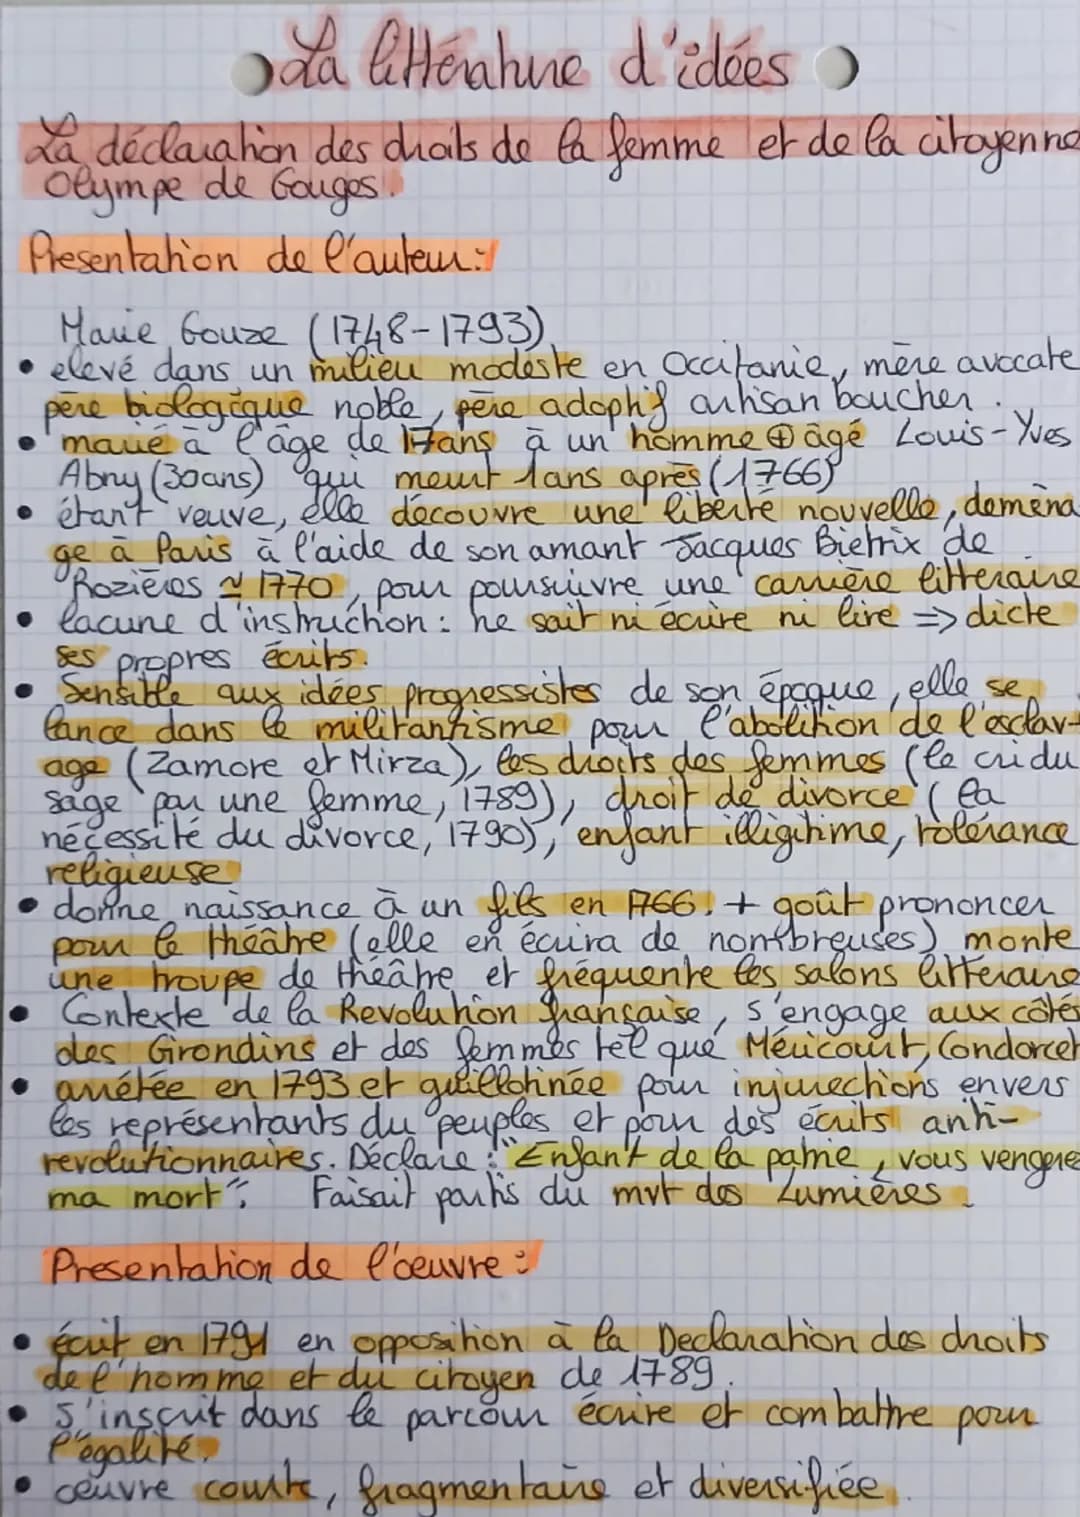 La littérature d'idées
La déclaration des droits de la femme et de la citoyenne
Olympe de Gouges.
Presentation de l'auteur :
Marie Gouze (1748-1793)
• elevé dans un milieu modeste en Occitanie, mère avocate
père biologique noble, père adoptif artisan boucher.
• marié à l'âge de 17ans à un homme ⊕ âgé Louis-Yves
Abry (30ans) qui meurt 1ans après (1766)
• étant veuve, elle découvre une liberté nouvelle, deména
ge à Paris à l'aide de son amant Jacques Bietrix de
Rozières ≃ 1770, pour poursuivre une carrière litteraire
• lacune d'instruction : ne sait ni écrire ni lire => dicte
ses propres écrits.
• Sensible aux idées progressistes de son époque, elle se
lance dans le militantisme pour l'abolition de l'esclav-
age (Zamore et Mirza), les droits des femmes (le cri du
sage par une femme, 1789), droit de divorce (la
nécessité du divorce, 1790), enfant illigitime, tolérance
religieuse
• donne naissance à un fils en 1766. + goût prononcer
pour le théâtre (elle en écrira de nombreuses) monte
une troupe de théâtre et fréquente les salons litteraire
• Contexte de la Revolution française, s'engage aux côtés
des Girondins et des femmes tel que Méricourt, Condorcet
• arrétée en 1793 et guillotinée pour injurections envers
les représentants du peuples et pour des écrits anti-
revolutionnaires. Déclare : "Enfant de la patrie, vous vengere
ma mort". Faisait partis du mvt des Lumières.
Presentation de l'œuvre :
• écrit en 1791 en opposition à la Declaration des droits
de l'homme et du citoyen de 1789.
• S'inscrit dans le parcour écrire et combattre pour
l'égalité.
• œuvre courte, fragmentaire et diversifiée.